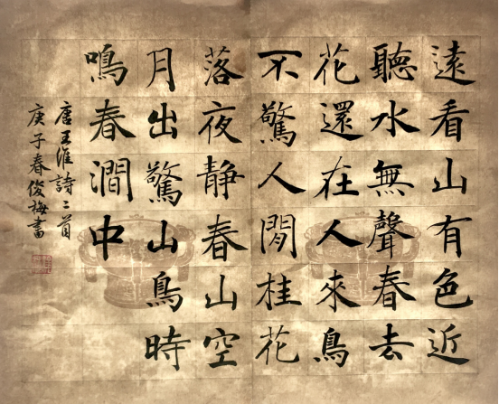 遠看山有色近
聽水無聲春去
花還在人來鳥
不驚人閒桂花
落夜靜春山空
月出驚山鳥時
鳴春澗中
唐王維詩二首
庚子春俊梅書